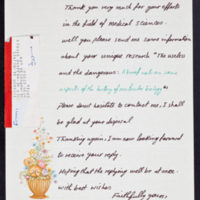 Thank you very much for your efforts
in the field of medical sciences.
will you please send me some information
about your unique research "The useless
and the dangerous:
aspects of the history of molecular biology"
Please don't hesitate to contact me, I shall
be glad at your disposal
Thanking again, I am now looking forward
to receive your reply.
Hoping that the replying will be at once.
with best wishes
Faithfully yours,
From: